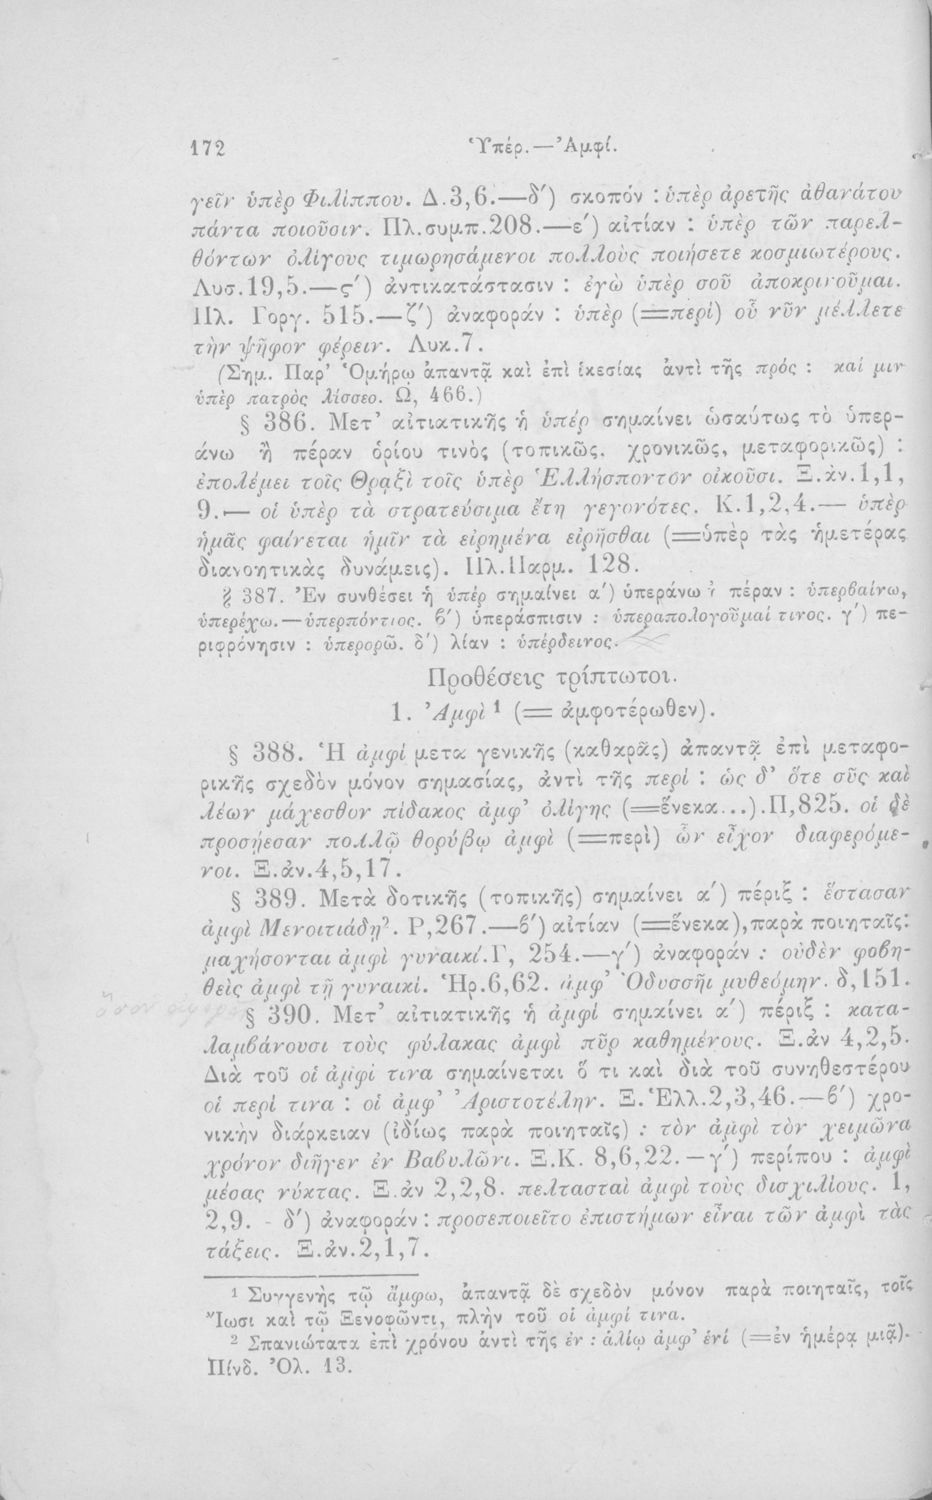 172 Ὑπέρ.—Ἀμφί.
γεῖν ὑπὲρ Φιλίππου. Δ.3,6.—δ′) σκοπόν : ὑπὲρ ἀρετῆς ἀθανάτου
πάντα ποιοῦσιν. Πλ.συμπ.208.—ε′) αἰτίαν : ὑπὲρ τῶν παρελ-
θόντων ὀλίγους τιμωρησάμενοι πολλοὺς ποιήσετε κοσμιωτέρους.
Λυσ.19,5.—ς′) ἀντικατάστασιν : ἐγὼ ὑπὲρ σοῦ ἀποκρινοῦμαι.
Πλ. Γοργ. 515.—ζ′) ἀναφοράν : ὑπὲρ (=περὶ) οὗ νῦν μέλλετε
τὴν ψῆφον φέρειν. Λυκ.7.
(Σημ. Παρ’ Ὁμήρῳ ἀπαντᾷ καὶ ἐπὶ ἱκεσίας ἀντὶ τῆς πρός : καί μιν
ὑπὲρ πατρὸς λίσσεο. Ω, 466.)
§ 386. Μετ’ αἰτιατικῆς ἡ ὑπέρ σημαίνει ὡσαύτως τὸ ὑπερ-
άνω ἢ πέραν ὁρίου τινὸς (τοπικῶς, χρονικῶς, μεταφορικῶς) :
ἐπολέμει τοῖς Θρᾳξὶ τοῖς ὑπὲρ Ἑλλήσποντον οἰκοῦσι. Ξ.ἀν.1,1,
9.— οἱ ὑπὲρ τὰ στρατεύσιμα ἔτη γεγονότες. Κ.1,2,4.— ὑπὲρ
ἡμᾶς φαίνεται ἡμῖν τὰ εἰρημένα εἰρῆσθαι (=ὑπὲρ τὰς ἡμετέρας
διανοητικὰς δυνάμεις). Πλ.Παρμ. 128.
§ 387. Ἐν συνθέσει ἡ ὑπέρ σημαίνει α′) ὑπεράνω ἢ πέραν : ὑπερβαίνω,
ὑπερέχω.—ὑπερπόντιος. β′) ὑπεράσπισιν : ὑπεραπολογοῦμαί τινος. γ′) πε-
ριφρόνησιν : ὑπερορῶ. δ′) λίαν : ὑπέρδεινος.
Προθέσεις τρίπτωτοι.
1. Ἀμφὶ ¹ (= ἀμφοτέρωθεν).
§ 388. Ἡ ἀμφί μετὰ γενικῆς (καθαρᾶς) ἀπαντᾷ ἐπὶ μεταφο-
ρικῆς σχεδὸν μόνον σημασίας, ἀντὶ τῆς περί : ὡς δ’ ὅτε σῦς καὶ
λέων μάχεσθον πίδακος ἀμφ’ ὀλίγης (=ἕνεκα...).Π,825. οἱ δὲ
προσῄεσαν πολλῷ θορύβῳ ἀμφὶ (=περὶ) ὧν εἶχον διαφερόμε-
νοι. Ξ.ἀν.4,5,17.
§ 389. Μετὰ δοτικῆς (τοπικῆς) σημαίνει α′) πέριξ : ἕστασαν
ἀμφὶ Μενοιτιάδῃ². Ρ,267.—β′) αἰτίαν (=ἕνεκα),παρὰ ποιηταῖς:
μαχήσονται ἀμφὶ γυναικί.Γ, 254.—γ′) ἀναφοράν : οὐδὲν φοβη-
θεὶς ἀμφὶ τῇ γυναικί. Ἡρ.6,62. ἀμφ’ Ὀδυσσῆι μυθεόμην. δ,151.
§ 390. Μετ’ αἰτιατικῆς ἡ ἀμφί σημαίνει α′) πέριξ : κατα-
λαμβάνουσι τοὺς φύλακας ἀμφὶ πῦρ καθημένους. Ξ.ἀν 4,2,5.
Διὰ τοῦ οἱ ἀμφί τινα σημαίνεται ὅ τι καὶ διὰ τοῦ συνηθεστέρου
οἱ περί τινα : οἱ ἀμφ’ Ἀριστοτέλην. Ξ.Ἑλλ.2,3,46.—β′) χρο-
νικὴν διάρκειαν (ἰδίως παρὰ ποιηταῖς) : τὸν ἀμφὶ τὸν χειμῶνα
χρόνον διῆγεν ἐν Βαβυλῶνι. Ξ.Κ. 8,6,22.—γ′) περίπου : ἀμφὶ
μέσας νύκτας. Ξ.ἀν 2,2,8. πελτασταὶ ἀμφὶ τοὺς δισχιλίους. 1,
2,9. - δ′) ἀναφοράν : προσεποιεῖτο ἐπιστήμων εἶναι τῶν ἀμφὶ τὰς
τάξεις. Ξ.ἀν.2,1,7.
¹ Συγγενὴς τῷ ἄμφω, ἀπαντᾷ δὲ σχεδὸν μόνον παρὰ ποιηταῖς, τοῖς
Ἴωσι καὶ τῷ Ξενοφῶντι, πλὴν τοῦ οἱ ἀμφί τινα.
² Σπανιώτατα ἐπὶ χρόνου ἀντὶ τῆς ἐν : ἁλίῳ ἀμφ’ ἑνί (=ἐν ἡμέρᾳ μιᾷ).
Πίνδ. Ὀλ. 13.